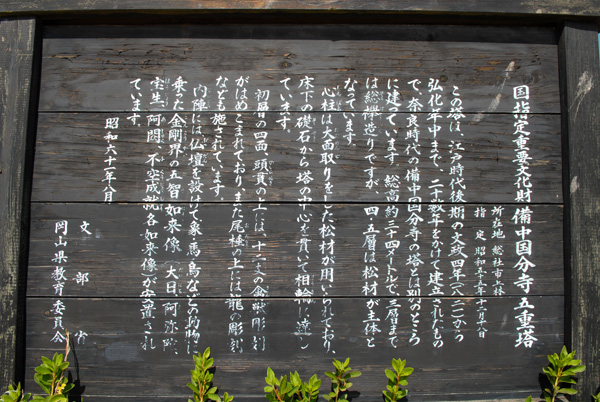 国指定重要文化財 備中国分寺五重塔
所在地 総社市上林
指定 昭和五十五年十二月十八日
この塔は、江戸時代後期の文政四年(一八二一)から
弘化年中まで、二十数年をかけて建立されたもの
で、奈良時代の備中国分寺の塔とは別のところ
に建っています。総高約三十四メートルで、三層まで
は総欅造りですが、四、五層は松材が主体と
なっています。
心柱は大面取りをした松材が用いられており、
床下の礎石から塔の中心を貫いて相輪に達し
ています。
初層の四面、頭貫の上には、十二支の
がはめこまれており、また尾棰の上には龍の彫刻
なども施されています。
内陣には仏壇を設けて象・馬・鳥などの動物に
乗った金剛界の五智如来像(大日、阿弥陀、
宝生、阿閦、不空成就各如来像が安置され
ています。
昭和六十一年八月
文部省
岡山県教育委員会